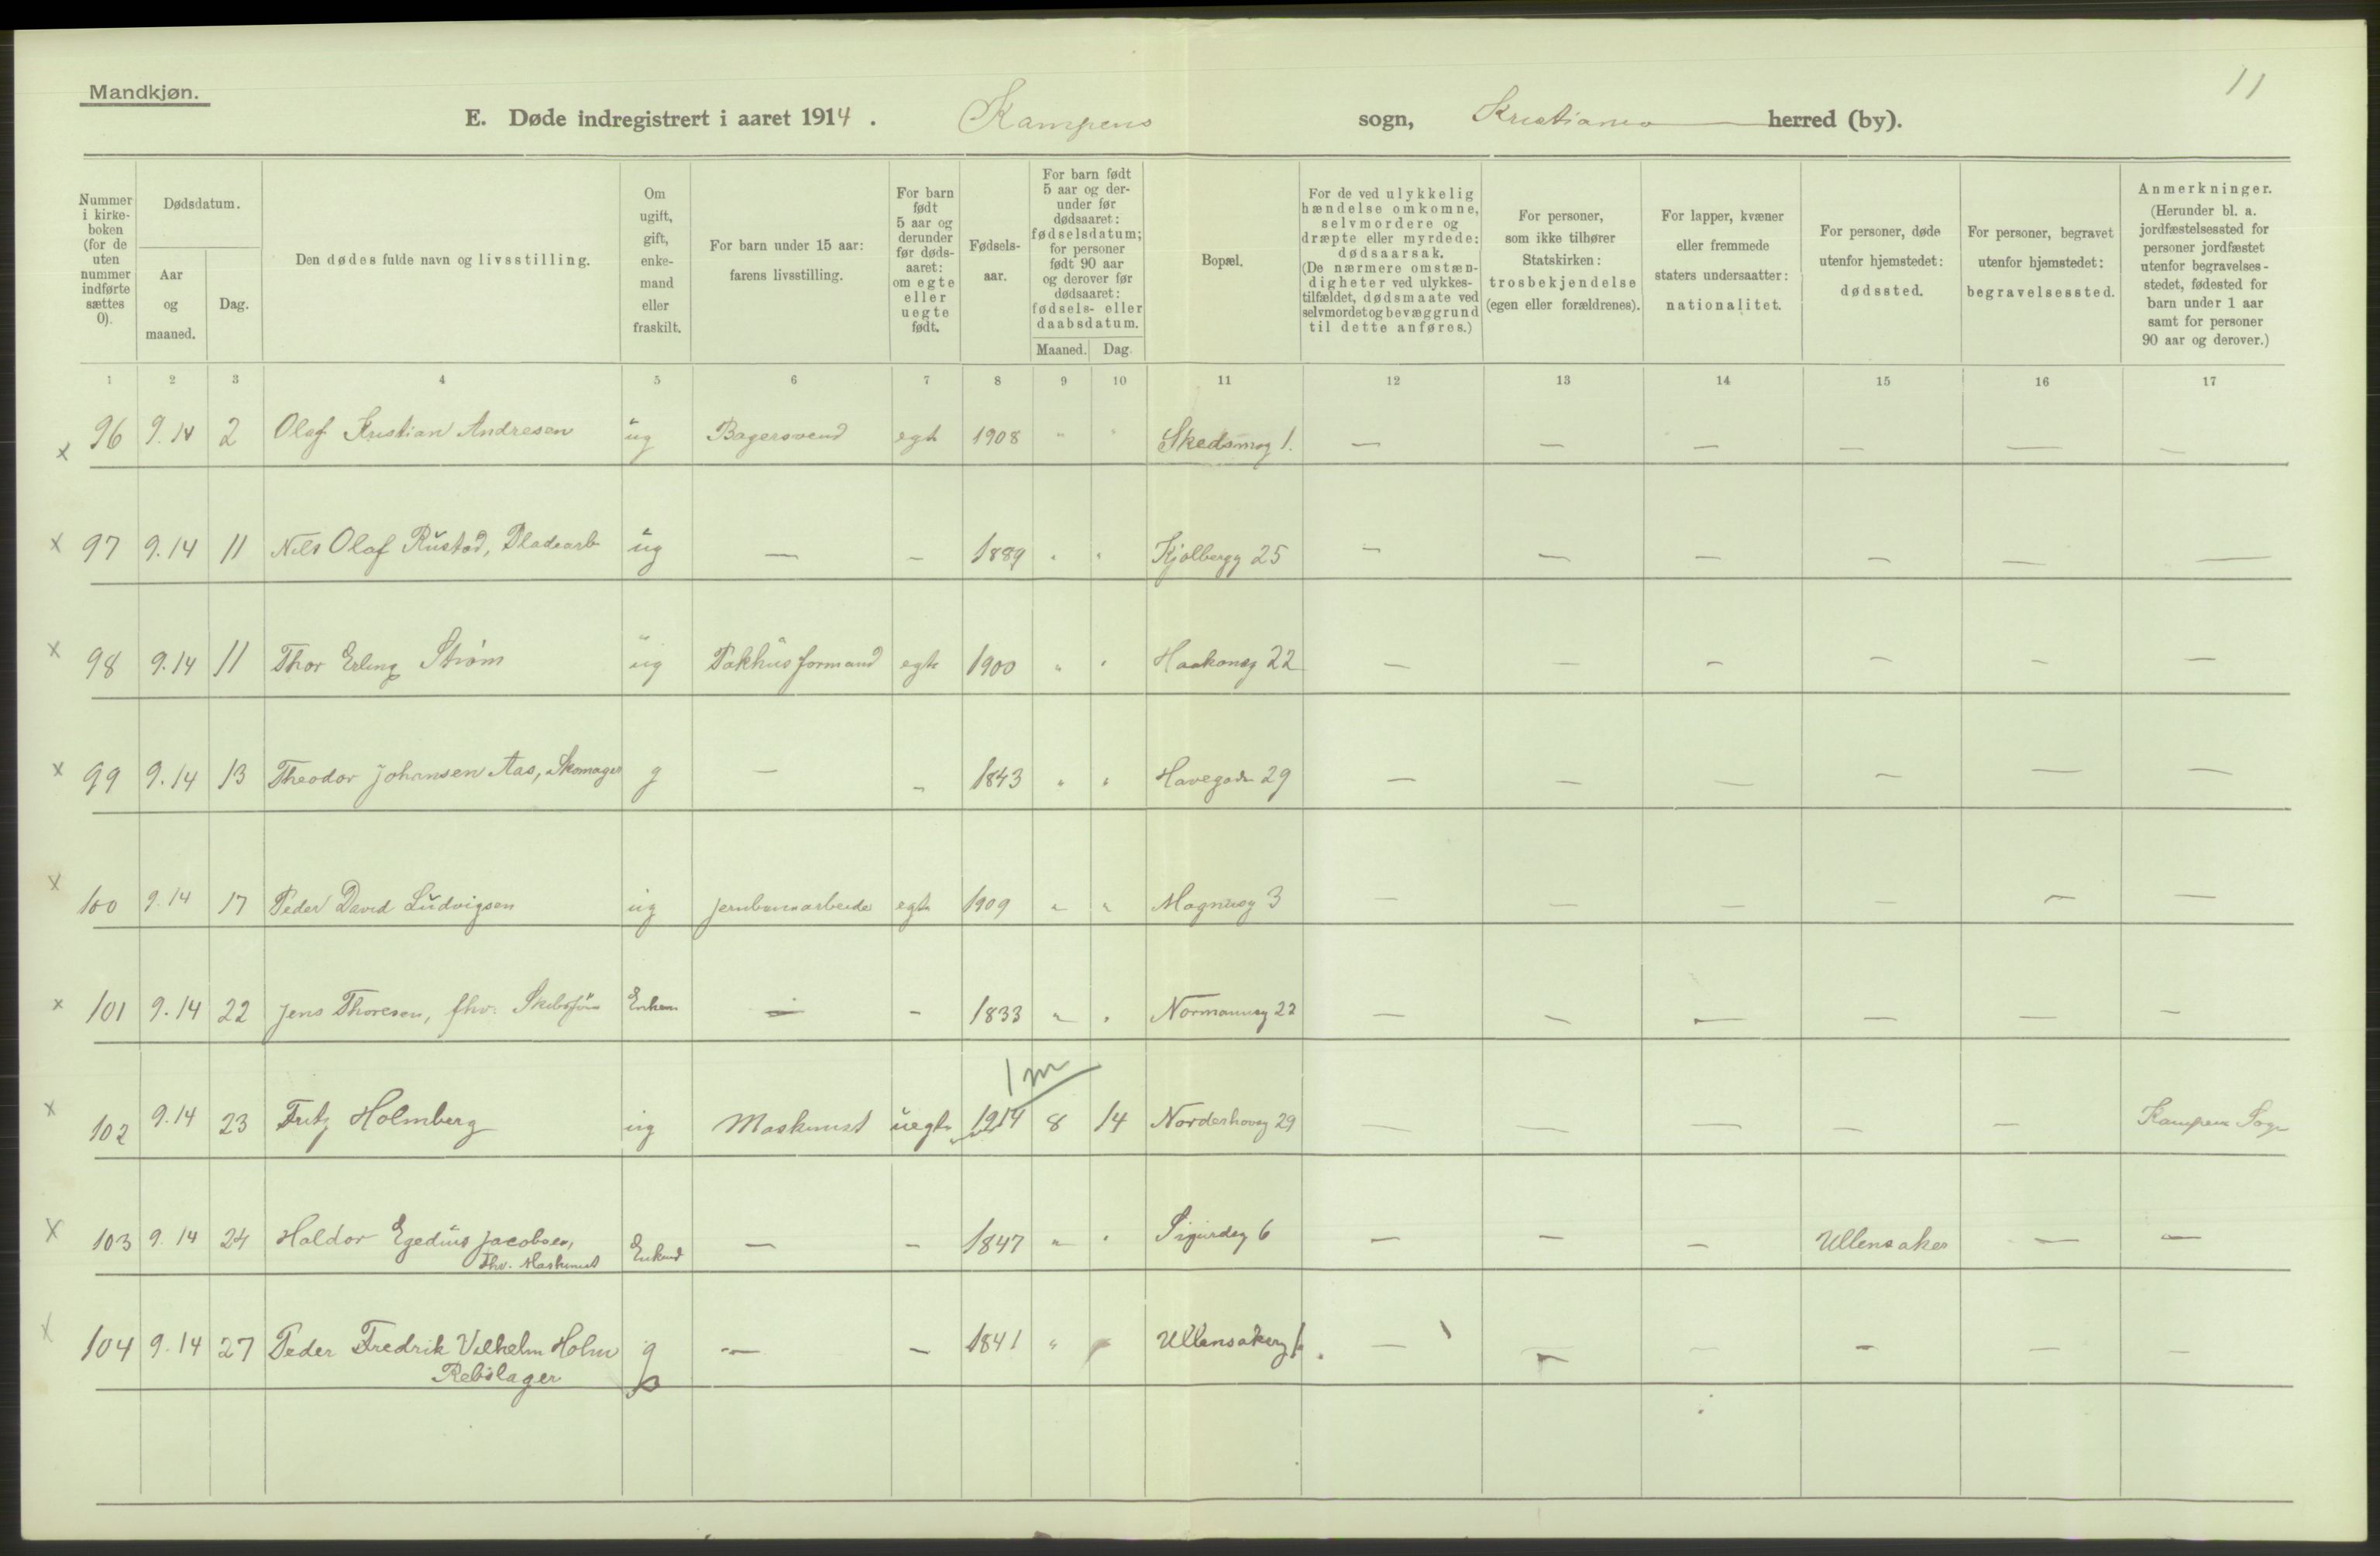 Mandkjøn.
11
E. Døde indregistrert i aaret 1914. Kampens sogn, Kristiania herred (by).
Nummer i kirkeboken (for de uten nummer indførte sættes 0).
Dødsdatum.
Aar og maaned.
Dag.
Den dødes fulde navn og livsstilling.
Om ugift, gift, enkemand eller fraskilt.
For barn under 15 aar: farens livsstilling.
For barn født 5 aar og derunder før dødsaaret: om egte eller uegte født.
Fødselsaar.
For barn født 5 aar og derunder før dødsaaret: fødselsdatum; for personer født 90 aar og derover før dødsaaret: fødsels- eller daabsdatum.
Maaned. Dag.
Bopæl.
For de ved ulykkelig hændelse omkomne, selvmordere og dræpte eller myrdede: dødsaarsak. (De nærmere omstændigheter ved ulykkestilfældet, dødsmaate ved selvmordet og bevæggrund til dette anføres.)
For personer, som ikke tilhører Statskirken: trosbekjendelse (egen eller forældrenes).
For lapper, kvæner eller fremmede staters undersaatter: nationalitet.
For personer, døde utenfor hjemstedet: dødssted.
For personer, begravet utenfor hjemstedet: begravelsessted.
Anmerkninger. (Herunder bl. a. jordfæstelsessted for personer jordfæstet utenfor begravelsesstedet, fødested for barn under 1 aar samt for personer 90 aar og derover.)
1 2 3 4 5 6 7 8 9 10 11 12 13 14 15 16 17
x 96 9.14 2 Olaf Kristian Andresen ug Bagersvend egte 1908 " " Skedsmog 1. — — — — — —
x 97 9.14 11 Nils Olaf Rustad, Pladearb ug — — 1889 " " Kjølbergg 25 — — — — — —
x 98 9.14 11 Thor Erling Strøm ug Pakhusformand egte 1900 " " Haakonsg 22 — — — — — —
x 99 9.14 13 Theodor Johansen Aas, Skomager g — — 1843 " " Havegaden 29 — — — — — —
x 100 9.14 17 Peder David Ludvigsen ug Jernbanearbeider egte 1909 " " Magnusg 3 — — — — — —
x 101 9.14 22 Jens Thoresen, fhv. Enkem — — 1833 " " Normannsg 22 — — — — — —
1 m
x 102 9.14 23 Fritz Holmberg ug Maskinist uegte 1914 8 14 Norderhovsg 29 — — — — — Kampens Sogn
x 103 9.14 24 Haldor Egedius Jacobsen, Enkemd — — 1847 " " Sigurdsg 6 — — — Ullensaker — —
fhv. Maskinist
x 104 9.14 27 Peder Fredrik Vilhelm Holm g — — 1841 " " Ullensakerg 1. — — — — — —
Rebslager